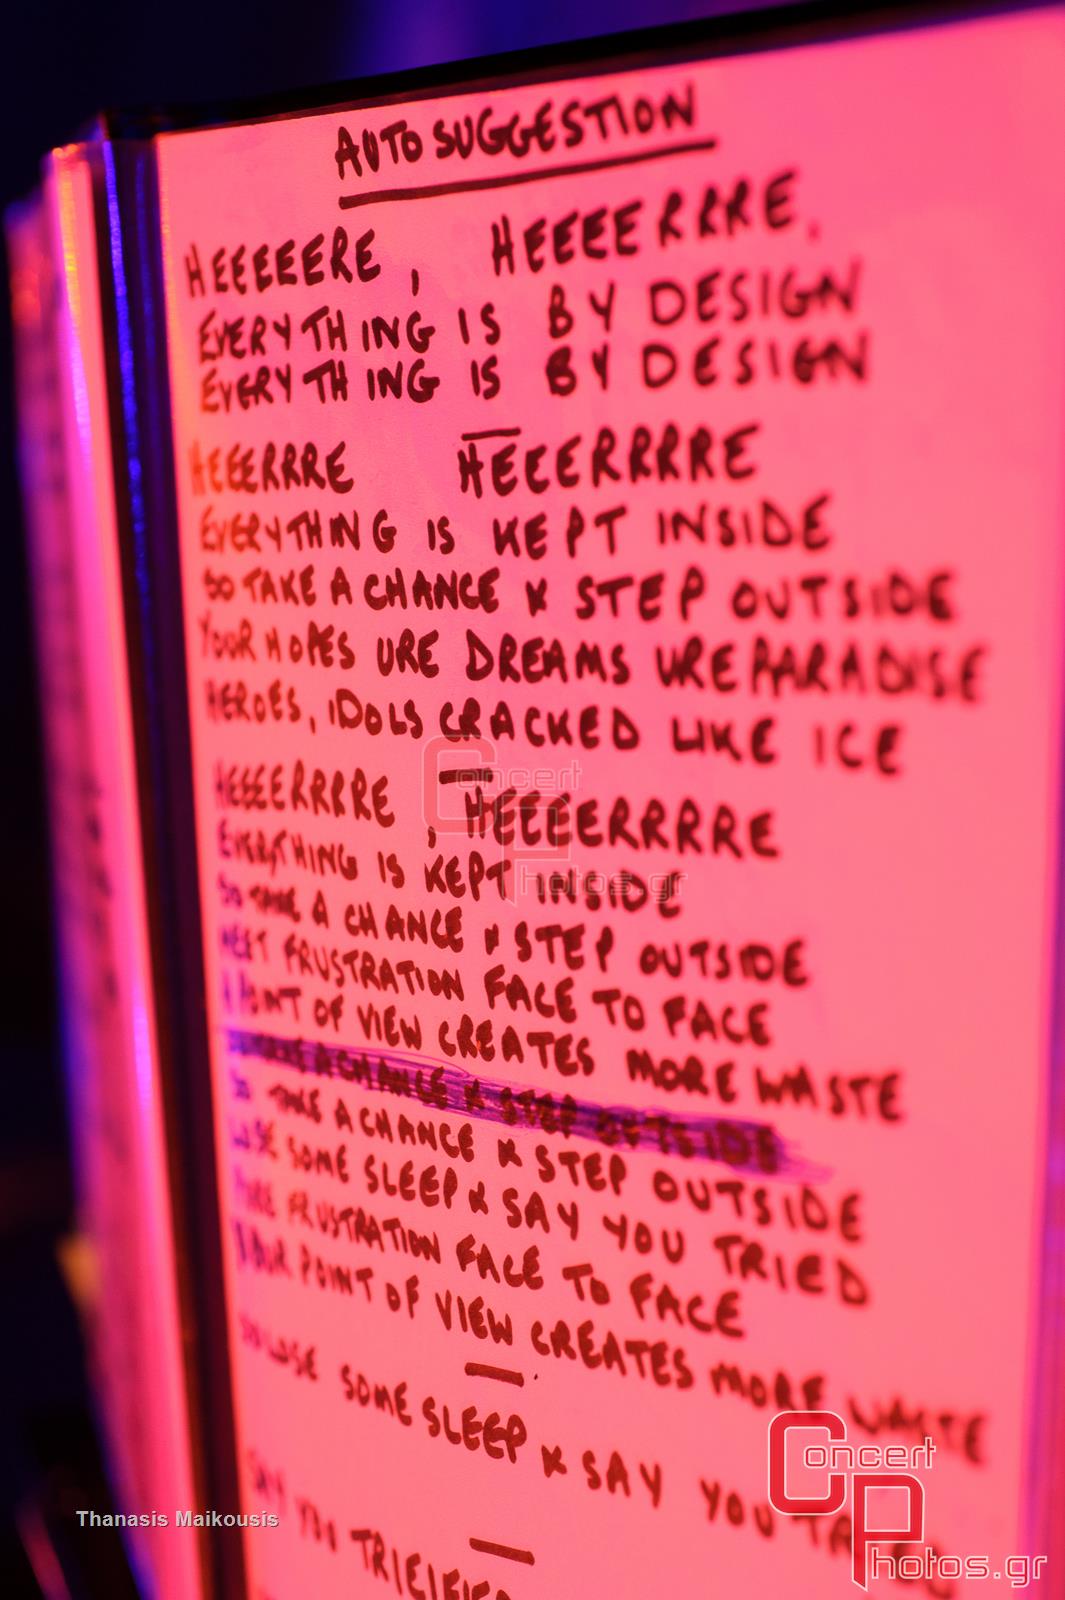 AUTOSUGGESTION
HEEEEERE, HEEEERRRE.
EVERYTHING IS BY DESIGN
EVERYTHING IS BY DESIGN
HEEERRRE HEEERRRRE
EVERYTHING IS KEPT INSIDE
SO TAKE A CHANCE & STEP OUTSIDE
YOUR HOPES URE DREAMS URE PARADISE
HEROES, IDOLS CRACKED LIKE ICE
HEEEERRRRE, HEEEEERRRRE
EVERYTHING IS KEPT INSIDE
SO TAKE A CHANCE & STEP OUTSIDE
MEET FRUSTRATION FACE TO FACE
A POINT OF VIEW CREATES MORE WASTE
TAKE A CHANCE & STEP OUTSIDE
SO TAKE A CHANCE & STEP OUTSIDE
LOSE SOME SLEEP & SAY YOU TRIED
FRUSTRATION FACE TO FACE
YOUR POINT OF VIEW CREATES MORE WASTE
LOSE SOME SLEEP & SAY YOU
SAY YOU
Concert Photos.gr
Thanasis Maikousis
Concert Photos.gr